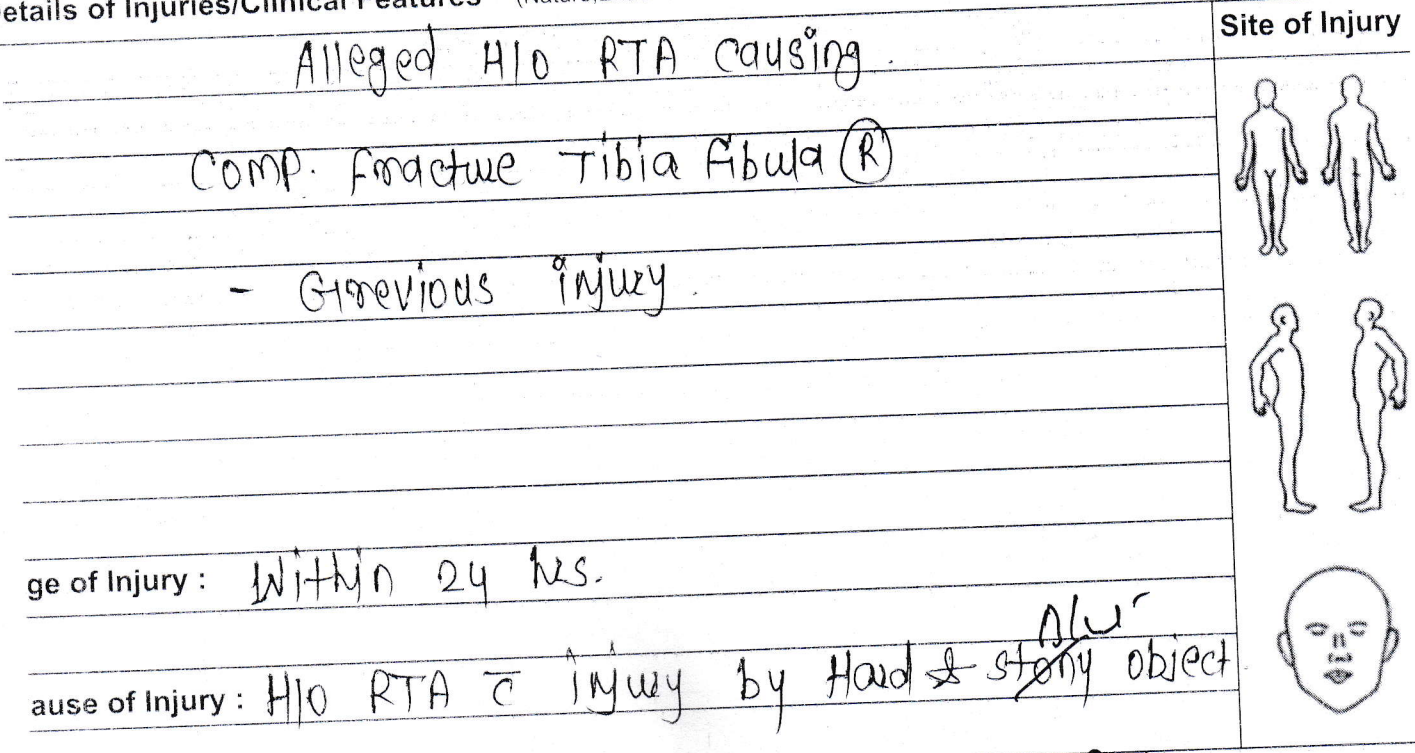 etails of Injuries/Clinical Features
Site of Injury
Alleged H/O RTA causing.
Comp. fracture Tibia fibula (R)
- Grevious injury.
ge of Injury : Within 24 hrs.
ause of Injury : H/O RTA c̅ injury by Hard & stony object